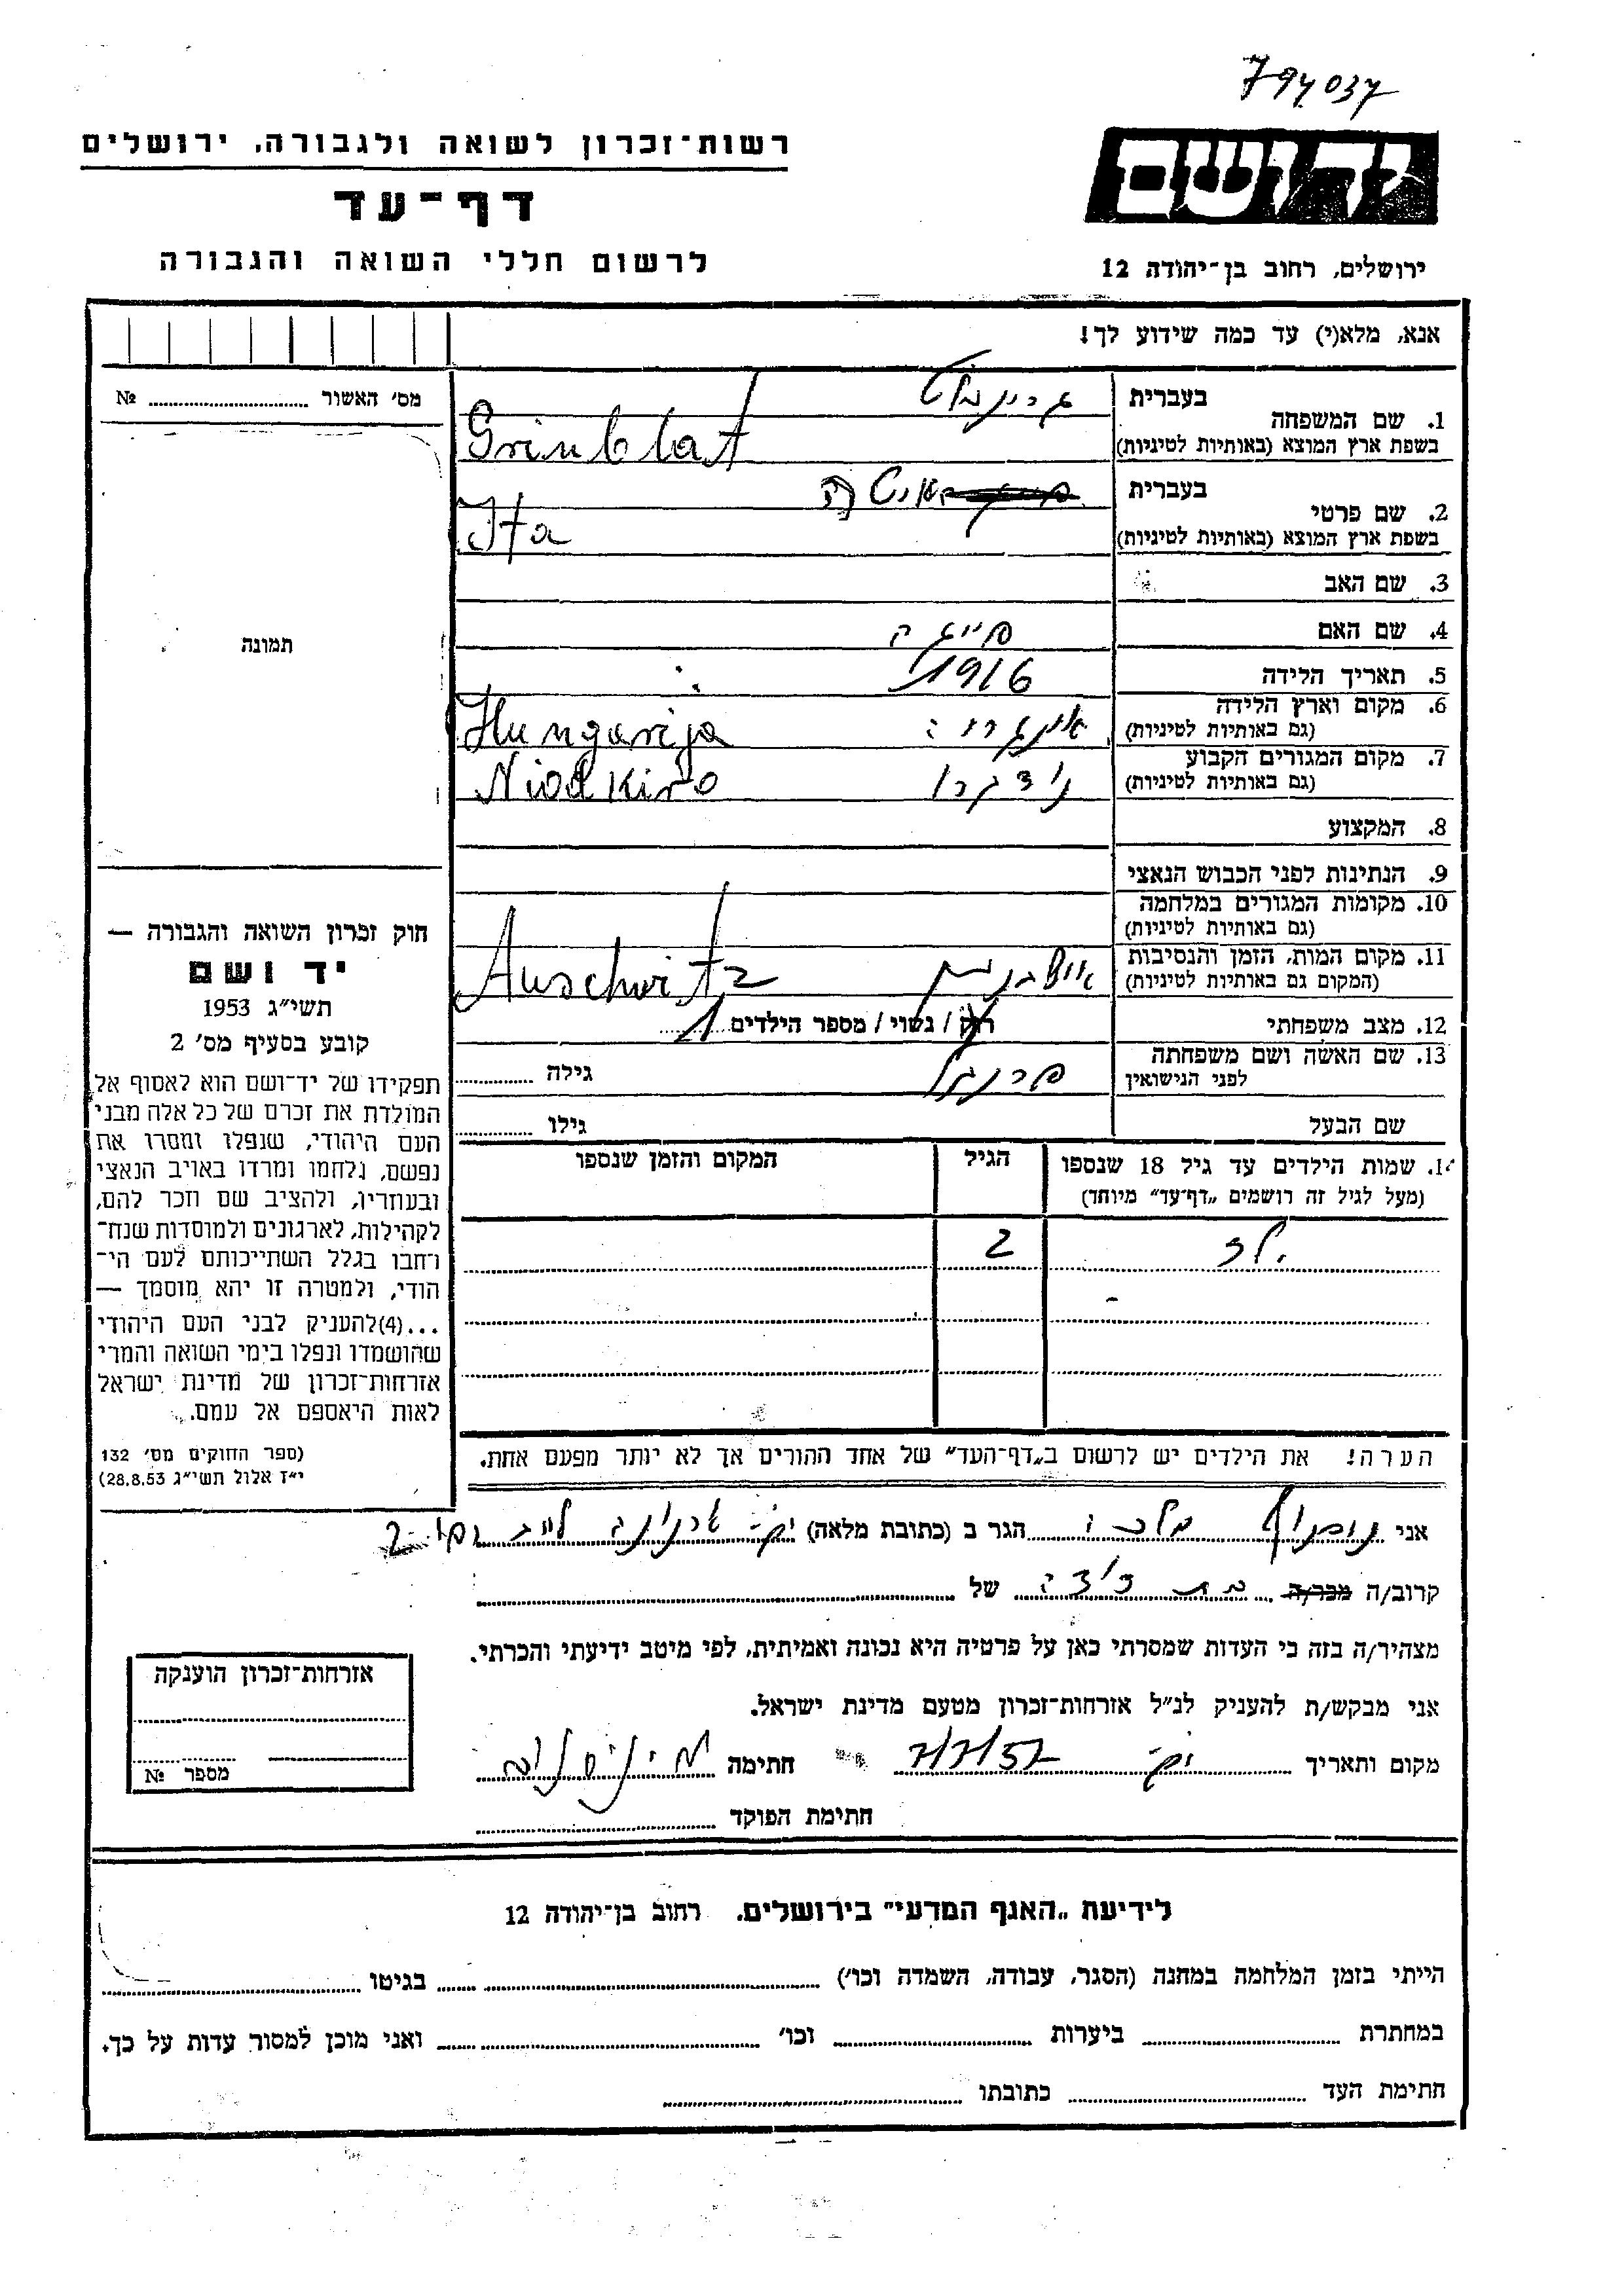 794037
יד ושם
רשות־זכרון לשואה ולגבורה, ירושלים
דף־עד
לרשום חללי השואה והגבורה
ירושלים, רחוב בן־יהודה 12
אנא, מלא(י) עד כמה שידוע לך!
מס׳ האשור № ..........
1. שם המשפחה
בעברית גרינבלט
בשפת ארץ המוצא (באותיות לטיניות) Grinblat
2. שם פרטי
בעברית איטה
בשפת ארץ המוצא (באותיות לטיניות) Ita
3. שם האב
4. שם האם פייגה
5. תאריך הלידה 1916
6. מקום וארץ הלידה
(גם באותיות לטיניות) Hungarija
7. מקום המגורים הקבוע
(גם באותיות לטיניות) Niodkiro
8. המקצוע
9. הנתינות לפני הכבוש הנאצי
10. מקומות המגורים במלחמה
(גם באותיות לטיניות)
11. מקום המות, הזמן והנסיבות
(המקום גם באותיות לטיניות) Auschwitz
12. מצב משפחתי רוק / נשוי / מספר הילדים 1
13. שם האשה ושם משפחתה
לפני הנישואין פרנקל גילה
שם הבעל גילו
14. שמות הילדים עד גיל 18 שנספו הגיל המקום והזמן שנספו
(מעל לגיל זה רושמים „דף־עד” מיוחד)
ילד 2
הערה! את הילדים יש לרשום ב„דף־העד” של אחד ההורים אך לא יותר מפעם אחת.
תמונה
חוק זכרון השואה והגבורה —
יד ושם
תשי״ג 1953
קובע בסעיף מס׳ 2
תפקידו של יד־ושם הוא לאסוף אל
המולדת את זכרם של כל אלה מבני
העם היהודי, שנפלו ומסרו את
נפשם, נלחמו ומרדו באויב הנאצי
ובעוזריו, ולהציב שם וזכר להם,
לקהילות, לארגונים ולמוסדות שנח־
רחבו בגלל השתייכותם לעם הי־
הודי, ולמטרה זו יהא מוסמך —
...(4)להעניק לבני העם היהודי
שהושמדו ונפלו בימי השואה והמרי
אזרחות־זכרון של מדינת ישראל
לאות היאספם אל עמם.
(ספר החוקים מס׳ 132
י״ז אלול תשי״ג 28.8.53)
אני מלכה הגר ב (כתובת מלאה)
קרוב/ה מכר/ה בת דודה של
מצהיר/ה בזה כי העדות שמסרתי כאן על פרטיה היא נכונה ואמיתית, לפי מיטב ידיעתי והכרתי.
אני מבקש/ת להעניק לנ״ל אזרחות־זכרון מטעם מדינת ישראל.
מקום ותאריך 7/7/57 חתימה
חתימת הפוקד
אזרחות־זכרון הוענקה
מספר №
לידיעת „האגף המדעי” בירושלים, רחוב בן־יהודה 12
הייתי בזמן המלחמה במחנה (הסגר, עבודה, השמדה וכו׳) בגיטו
במחתרת ביערות וכו׳ ואני מוכן למסור עדות על כך.
חתימת העד כתובתו